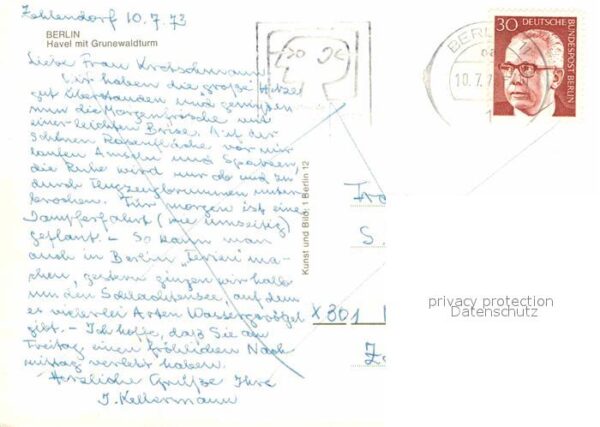 Zehlendorf 10.7.73
BERLIN
Havel mit Grunewaldturm
Liebe Frau Kretschmann
Wir haben die große Hitze
gut überstanden und genießen
nun die Morgenfrische mit
einer leichten Brise. Auf der
schönen Rasenfläche vor mir
laufen Amseln und Spatzen,
die Ruhe wird nur ab und zu
durch Flugzeugbrummen unter-
brochen. Für morgen ist eine
Dampferfahrt (wie umseitig)
geplant. – So kann man
auch in Berlin "Ferien" ma-
chen, gestern gingen wir halb
um den Schlachtensee, auf dem
es vielerlei Arten Wasservögel
gibt. – Ich hoffe, daß Sie am
Freitag einen fröhlichen Nach-
mittag verlebt haben.
Herzliche Grüße Ihre
J. Kellermann
Kunst und Bild, 1 Berlin 12
BERLIN
10.7.7
30 DEUTSCHE
BUNDESPOST BERLIN
Fra
S.
X 801
Z
privacy protection
Datenschutz